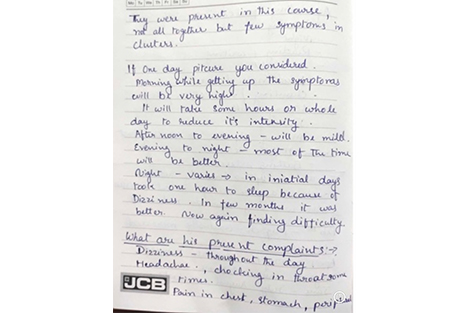 They were present in this course,
not all together but few symptoms in
clusters.
If One day pitcure you considered.
Morning while getting up the symptoms
will be very high.
It will take some hours or whole
day to reduce it's intensity.
After noon to evening - will be mild.
Evening to night - most of the time
will be better.
Night - varies → in iniatial days
took one hour to sleep because of
Dizziness. In few months it was
better. Now again finding difficulty.
What are his present complaints:→
Dizziness - throughout the day
Headache, chocking in throat some
times.
Pain in chest, stomach,
JCB